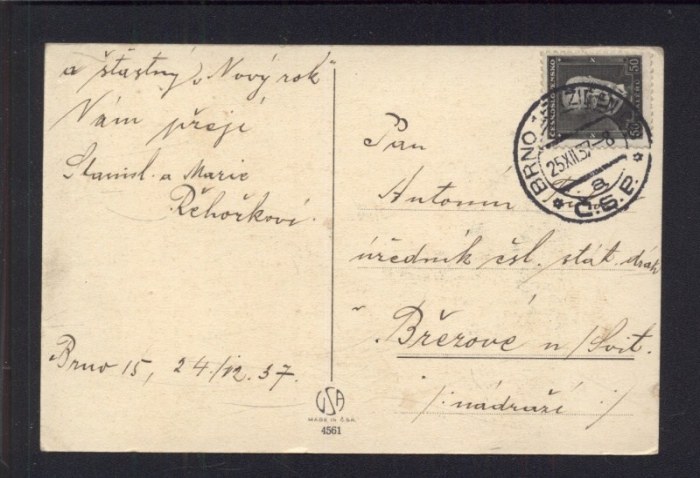 a šťastný „Nový rok“
Vám přejí
Stanisl. a Marie
Řehořkovi.
Brno 15, 24/12.37.
USA
MADE IN Č.S.R.
4561
ČESKOSLOVENSKO
50
50
BRNO
ŽIDEN
25.XII.37-8
a
Č.S.P.
Pan
Antonín
úředník čsl. stát. drah
Březové n/Svit.
/: nádraží :/